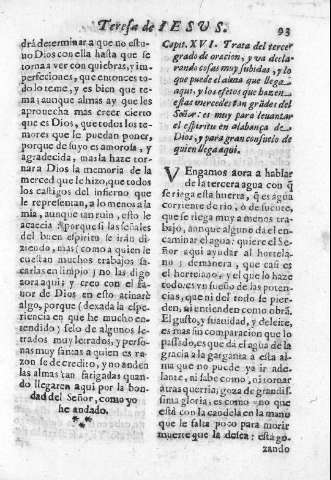 Teresa de IESUS.
93
drá determinar a que no estu-
uo Dios con ella hasta que se
torna a ver con quiebras, y im-
perfeciones, que entonces to-
do lo teme, y es bien que te-
ma; aunque almas ay que les
aprouecha mas creer cierto
que es Dios, que todos los te-
mores que le puedan poner,
porque de suyo es amorosa, y
agradecida, mas la haze tor-
nar a Dios la memoria de la
merced que le hizo, que todos
los castigos del infierno que
le representan, a lo menos a la
mia, aunque tan ruin, esto le
acaecia. Aporque si las señales
del buen espiritu se irán di-
ziendo, mas (como a quien le
cuestan muchos trabajos sa-
carlas en limpio) no las digo
aora aqui; y creo con el fa-
uor de Dios en esto atinarè
algo, porque (dexada la espe-
riencia en que he mucho en-
tendido) selo de algunos le-
trados muy letrados, y perso-
nas muy santas a quien es ra-
zon se de credito, y no anden
las almas tan fatigadas quan-
do llegaren aqui por la bon-
dad del Señor, como yo
he andado.
Capit. XVI. Trata del tercer
grado de oracion, y va decla-
rando cosas muy subidas, y lo
que puede el alma que llega
aqui, y los efetos que hazen
estas mercedes tan grãdes del
Señor: es muy para leuantar
el espiritu en alabança de
Dios, y para gran consuelo de
quien llega aqui.
VEngamos aora a hablar
de la tercera agua con q̃
se riega esta huerta, q̃ es agua
corriente de rio, o de fuente,
que se riega muy a menos tra-
bajo, aunque alguno da el en-
caminar el agua: quiere el Se-
ñor aqui ayudar al hortela-
no; de manera, que casi es
el hortelano, y el que lo haze
todo, es vn sueño de las poten-
cias, que ni del todo se pier-
den, ni entienden como obrã.
El gusto, y suauidad, y deleite,
es mas sin comparacion que lo
passado, es que dà el agua de la
gracia a la garganta a esta al-
ma que no puede ya ir ade-
lante, ni sabe como, ni tornar
atras querria, goza de grandis-
sima gloria; es como vno que
està con la candela en la mano
que le falta poco para morir
muerte que la desea: està go-
zando